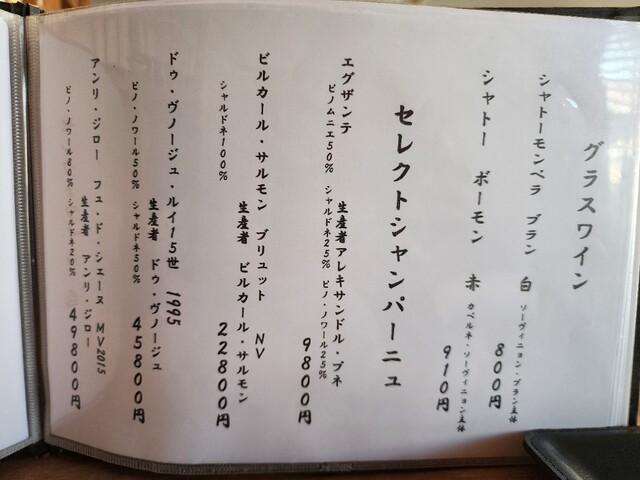 グラスワイン
シャトーモンペラ ブラン 白 ソーヴィニョン・ブラン主体
800円
シャトー ボーモン 赤 カベルネ・ソーヴィニョン主体
910円
セレクトシャンパーニュ
エグザンテ 生産者アレキサンドル・プネ
ピノムニエ50% シャルドネ25% ピノ・ノワール25%
9800円
ビルカール・サルモン ブリュット NV
生産者 ビルカール・サルモン
シャルドネ100% 22800円
ドゥ・ヴノージュ・ルイ15世 1995
生産者 ドゥ・ヴノージュ
ピノ・ノワール50% シャルドネ50% 45800円
アンリ・ジロー フュ・ド・シェーヌ MV2015
生産者 アンリ・ジロー
ピノ・ノワール80% シャルドネ20% 49800円